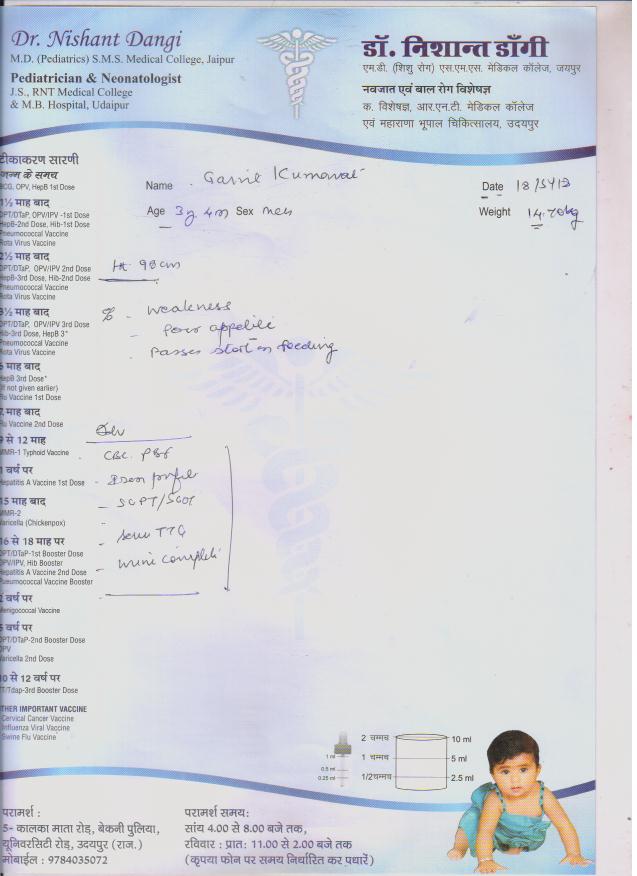 Dr. Nishant Dangi
M.D. (Pediatrics) S.M.S. Medical College, Jaipur
Pediatrician & Neonatologist
J.S., RNT Medical College
& M.B. Hospital, Udaipur
डॉ. निशान्त डाँगी
एम.डी. (शिशु रोग) एस.एम.एस. मेडिकल कॉलेज, जयपुर
नवजात एवं बाल रोग विशेषज्ञ
क. विशेषज्ञ, आर.एन.टी. मेडिकल कॉलेज
एवं महाराणा भूपाल चिकित्सालय, उदयपुर
Name Kumawat Date 18/5/12
Age 3 y 4m Sex Weight 14.70kg
Ht 98cm
- weakness
- Poor appetite
- Passes stool on feeding
CBC. PBF
- Iron profile
- SGPT/SGOT
- Serum TTG
- urine complete
टीकाकरण सारणी
जन्म के समय
BCG, OPV, HepB 1st Dose
1½ माह बाद
DPT/DTaP, OPV/IPV -1st Dose
HepB-2nd Dose, Hib-1st Dose
Pneumococcal Vaccine
Rota Virus Vaccine
2½ माह बाद
DPT/DTaP, OPV/IPV 2nd Dose
HepB-3rd Dose, Hib-2nd Dose
Pneumococcal Vaccine
Rota Virus Vaccine
3½ माह बाद
DPT/DTaP, OPV/IPV 3rd Dose
Hib-3rd Dose, HepB 3*
Pneumococcal Vaccine
Rota Virus Vaccine
माह बाद
HepB 3rd Dose*
(If not given earlier)
Flu Vaccine 1st Dose
माह बाद
Flu Vaccine 2nd Dose
9 से 12 माह
MMR-1 Typhoid Vaccine
वर्ष पर
Hepatitis A Vaccine 1st Dose
15 माह बाद
MMR-2
Varicella (Chickenpox)
16 से 18 माह पर
DPT/DTaP-1st Booster Dose
OPV/IPV, Hib Booster
Hepatitis A Vaccine 2nd Dose
Pneumococcal Vaccine Booster
वर्ष पर
Menigococcal Vaccine
5 वर्ष पर
DPT/DTaP-2nd Booster Dose
OPV
Varicella 2nd Dose
10 से 12 वर्ष पर
TT/Tdap-3rd Booster Dose
OTHER IMPORTANT VACCINE
Cervical Cancer Vaccine
Influenza Viral Vaccine
Swine Flu Vaccine
1 ml
0.5 ml
0.25 ml
2 चम्मच 10 ml
1 चम्मच 5 ml
1/2चम्मच 2.5 ml
परामर्श :
5- कालका माता रोड़, बेकनी पुलिया,
यूनिवरसिटी रोड़, उदयपुर (राज.)
मोबाईल : 9784035072
परामर्श समय:
सांय 4.00 से 8.00 बजे तक,
रविवार : प्रातः 11.00 से 2.00 बजे तक
(कृपया फोन पर समय निर्धारित कर पधारें)